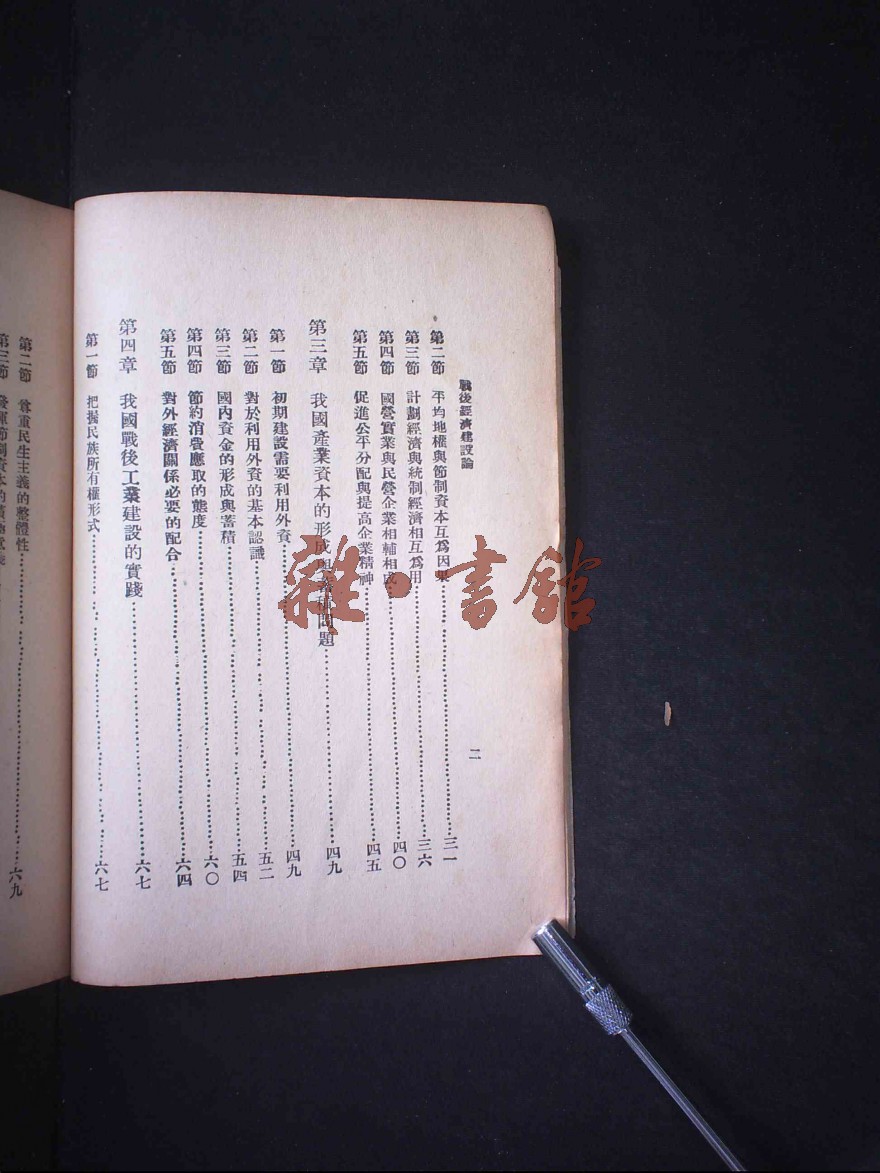 戰後經濟建設論
二
第二節 平均地權與節制資本互為因果……三一
第三節 計劃經濟與統制經濟相互爲用……三六
第四節 國營實業與民營企業相輔相成……四〇
第五節 促進公平分配與提高企業精神……四五
第三章 我國產業資本的形成與蓄積問題……四九
第一節 初期建設需要利用外資……四九
第二節 對於利用外資的基本認識……五二
第三節 國內資金的形成與蓄積……五四
第四節 節約消費應取的態度……六〇
第五節 對外經濟關係必要的配合……六四
第四章 我國戰後工業建設的實踐……六七
第一節 把握民族所有權形式……六七
第二節 尊重民生主義的整體性……六九
第三節 發揮節制資本的積極
雜·書館